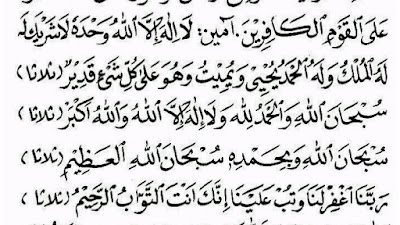 عَلَى ٱلْقَوْمِ ٱلْكَافِرِينَ. آمِينَ: لَا إِلٰهَ إِلَّا ٱللهُ وَحْدَهُ لَا شَرِيكَ لَهُ
لَهُ ٱلْمُلْكُ وَلَهُ ٱلْحَمْدُ يُحْيِى وَيُمِيتُ وَهُوَ عَلَى كُلِّ شَيْءٍ قَدِيْرٌ (ثلاثا)
سُبْحَانَ ٱللهِ وَٱلْحَمْدُ لِلّٰهِ وَلَا إِلٰهَ إِلَّا ٱللهُ وَٱللهُ أَكْبَرُ (ثلاثا)
سُبْحَانَ ٱللهِ وَبِحَمْدِهِ سُبْحَانَ ٱللهِ ٱلْعَظِيْمِ (ثلاثا)
رَبَّنَا ٱغْفِرْ لَنَا وَتُبْ عَلَيْنَا إِنَّكَ أَنْتَ ٱلتَّوَّابُ ٱلرَّحِيْمُ (ثلاثا)